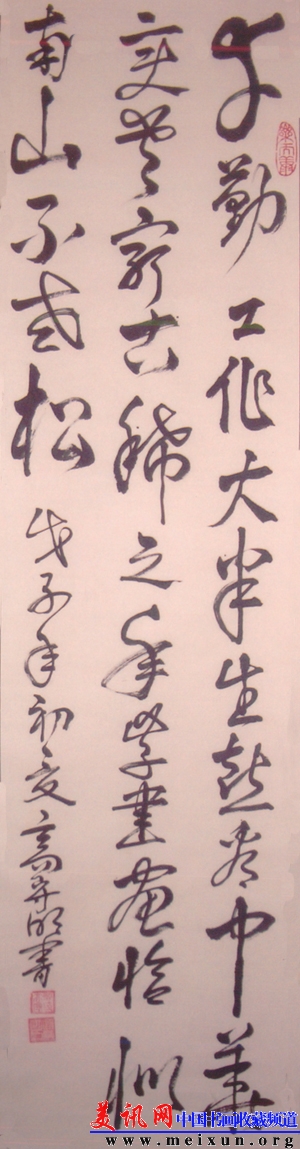 辛勤工作大半生喜看中華
变古稀之年学書画恰似
南山不老松
戊子年初夏高明書
美讯网 中国书画收藏频道
www.meixun.org